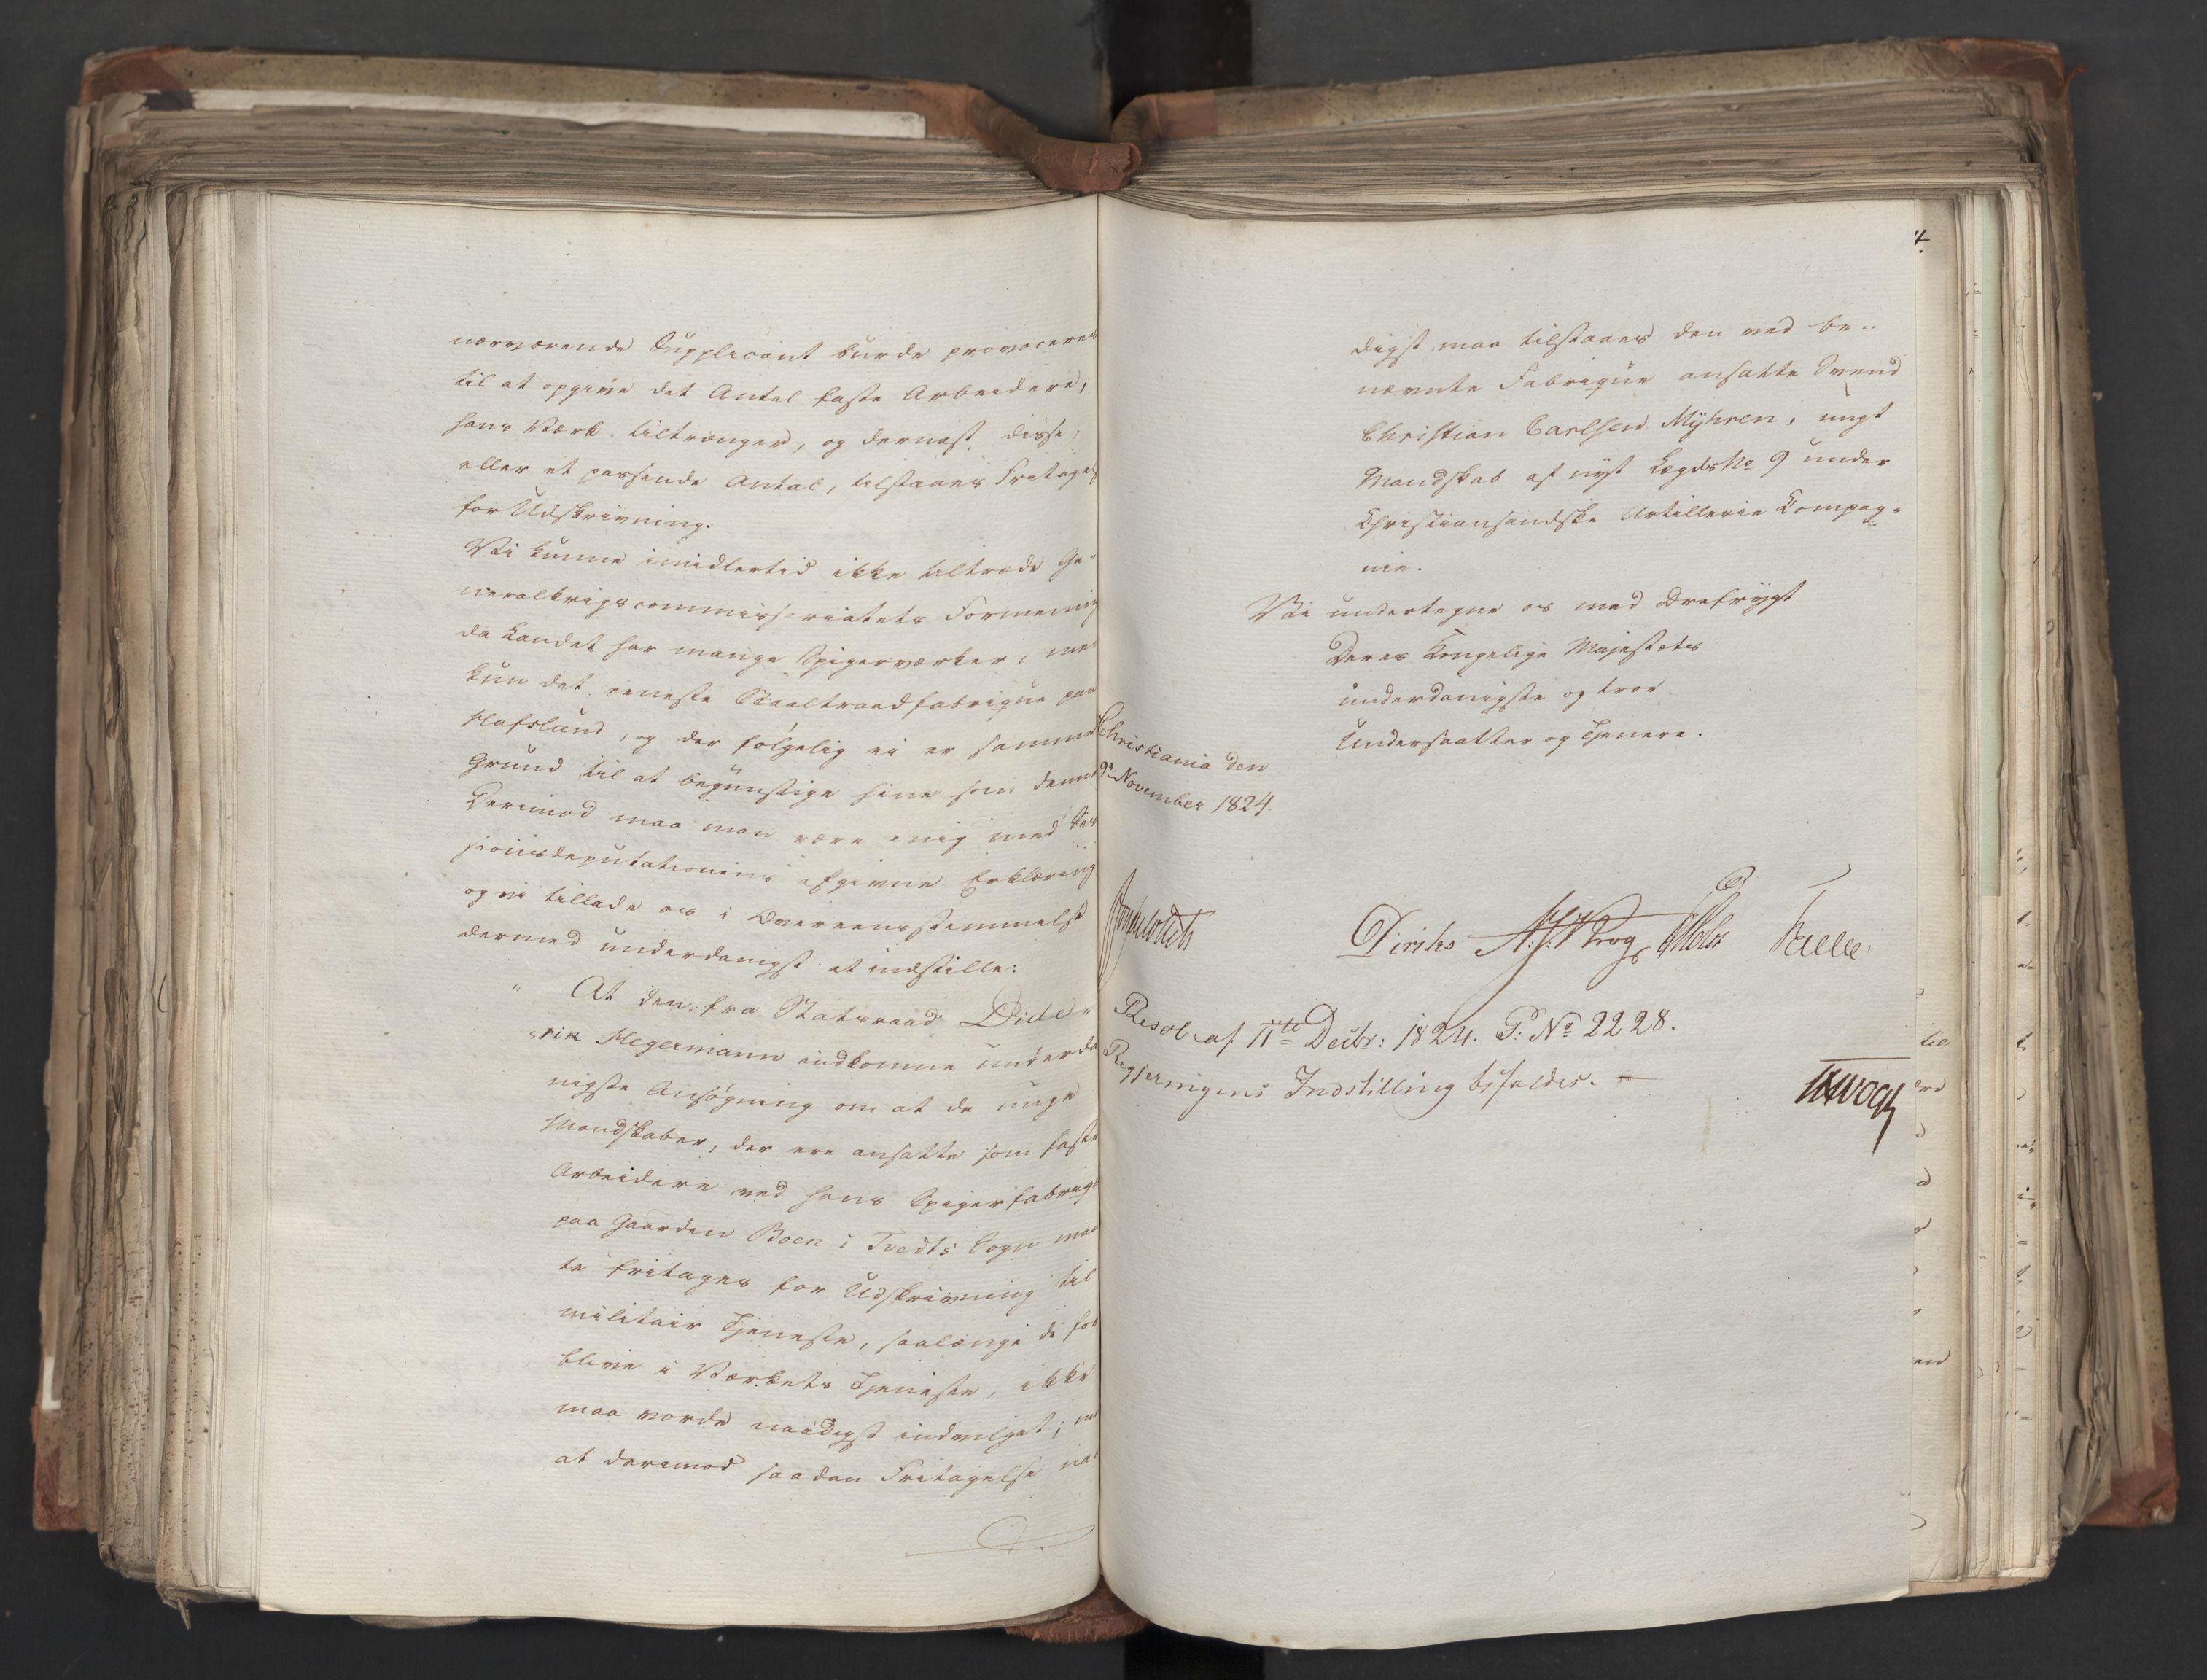 nærværende Supplicant burde provoceres
til at opgive det Antal faste Arbeidere,
hans Værk tiltrænger, og dernæst disse,
eller et passende Antal, tilstaaes Fritagels
for Udskrivning.
Vi kunne imidlertid ikke tiltræde Ge-
neralkrigscommissariatets Formening
da Landet har mange Spigerværker, men
kun det eeneste Staaltraadfabrique paa
Hafslund, og der følgelig ei er samme
Grund til at begunstige hine som denne
Derimod maa man være enig med Ses
sionsdeputationens afgivne Erklæring
og vi tillade os i Overeensstemmelse
dermed underdanigst at indstille:
" At den fra Statsraad Dide-
"rik Hegermann indkomne underda
nigste Ansøgning om at de unge
Mandskaber, der ere ansatte som faste
Arbeidere ved hans Spigerfabriqe
paa Gaarden Boen i Tvedts Sogn maa
te fritages for Udskrivning til
militair Tjeneste, saalænge de for
blive i Værkets Tjeneste, ikke
maa vorde naadigst indvilget; men
at derimod saadan Fritagelse naa
4.
digst maa tilstaaes den ved be-
nævnte Fabrique ansatte Svend
Christian Carlsen Myhren, ungt
Mandskab af nyt Lægds No 9 under
Christiansandske Artillerie Compag-
nie.
Vi undertegne os med Ærefrygt
Deres Kongelige Majestets
underdanigste og troe
Undersaatter og Tjenere.
Christiania den
9de November 1824.
Diriks
Resol. af 11te Decbr: 1824. P: No 2228.
Regjeringens Indstilling bifaldes. —